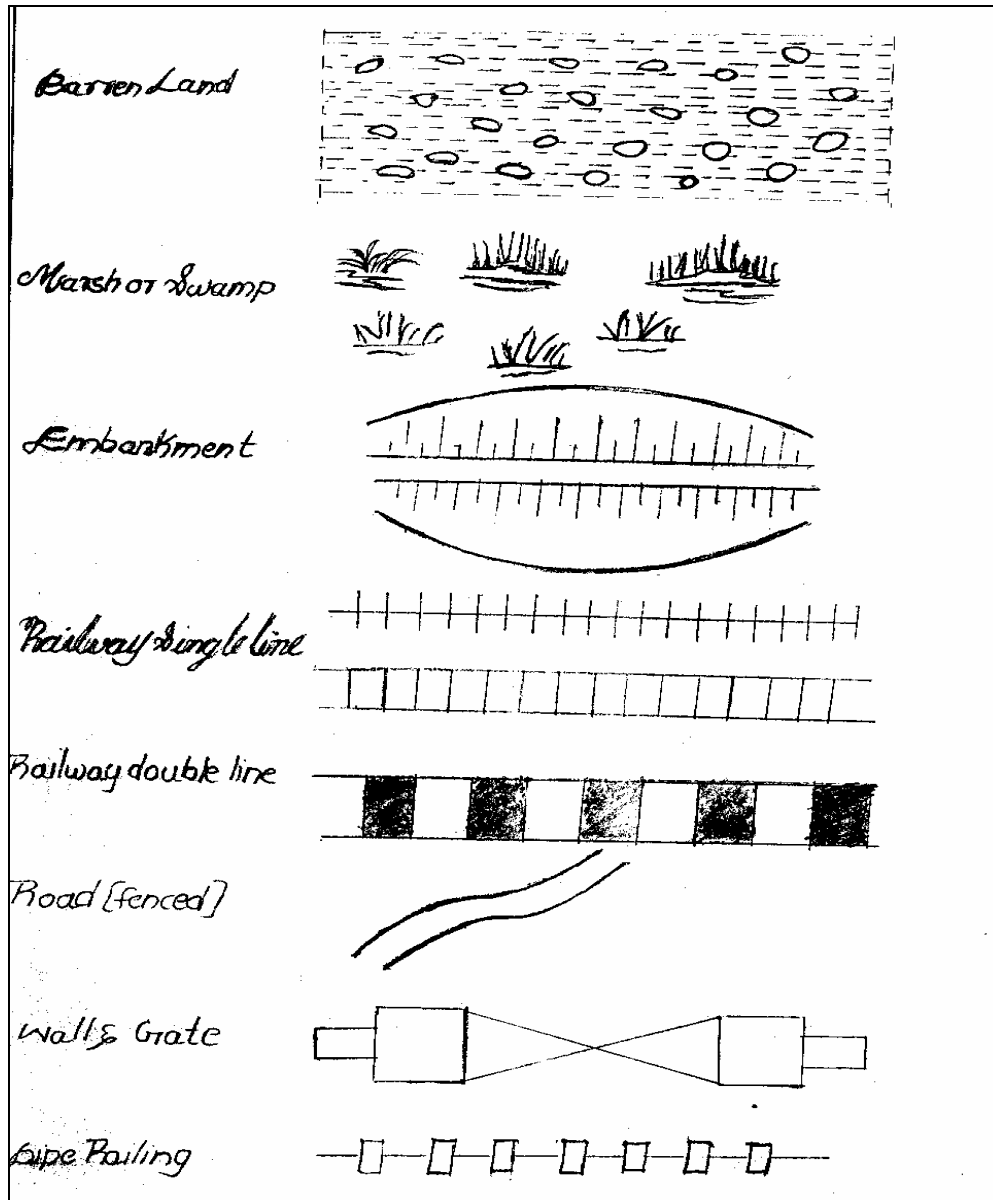 Barren Land
Marsh or Swamp
Embankment
Railway Single line
Railway double line
Road [fenced]
Wall & Gate
Pipe Railing